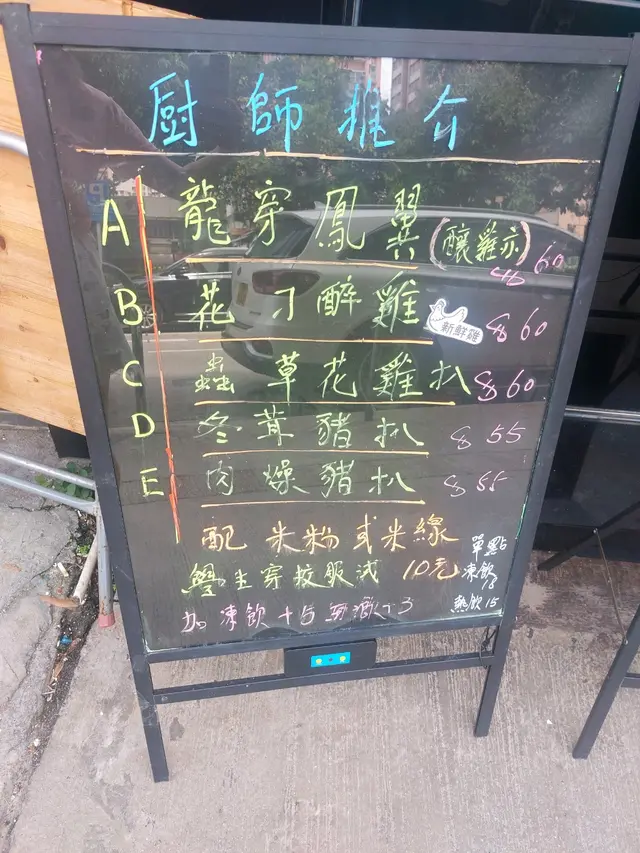 廚師推介
A 龍穿鳳翼 (釀雞亦) $60
B 花刁醉雞 新鮮雞 $60
C 蟲草花雞扒 $60
D 冬茸豬扒 $55
E 肉燥豬扒 $55
配米粉或米線
學生穿校服減 10元
單點
凍飲 18
熱飲 15
加凍飲+5 熱飲+3